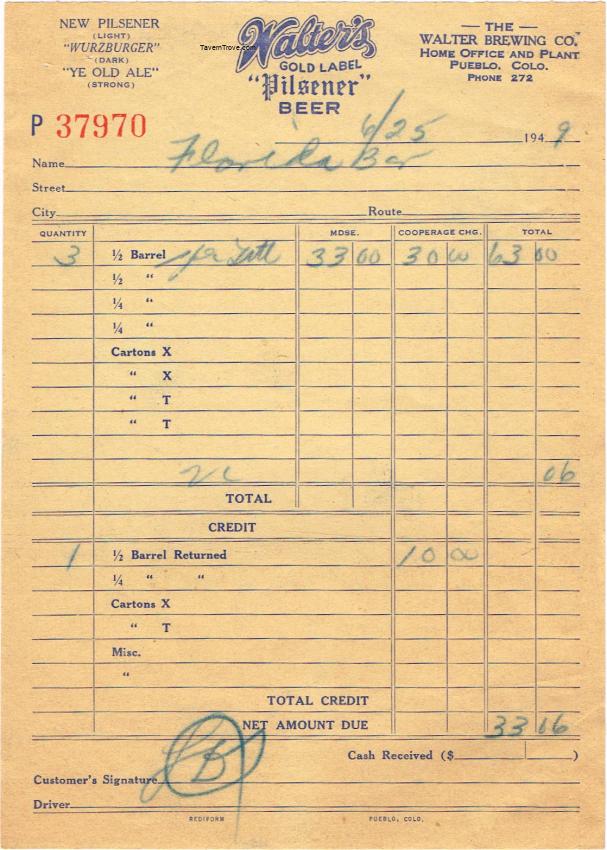 NEW PILSENER
(LIGHT)
"WURZBURGER"
(DARK)
"YE OLD ALE"
(STRONG)
TavernTrove.com
Walter's
GOLD LABEL
"Pilsener"
BEER
— THE —
WALTER BREWING CO.
HOME OFFICE AND PLANT
PUEBLO, COLO.
PHONE 272
P 37970
6/25 1949
Name Florida Bar
Street
City Route
QUANTITY MDSE. COOPERAGE CHG. TOTAL
3 ½ Barrel 33 00 30 00 63 00
½ "
¼ "
¼ "
Cartons X
" X
" T
" T
06
TOTAL
CREDIT
1 ½ Barrel Returned 10 00
¼ " "
Cartons X
" T
Misc.
"
TOTAL CREDIT
NET AMOUNT DUE 33 06
Cash Received ($ )
Customer's Signature
Driver
REDIFORM PUEBLO, COLO.